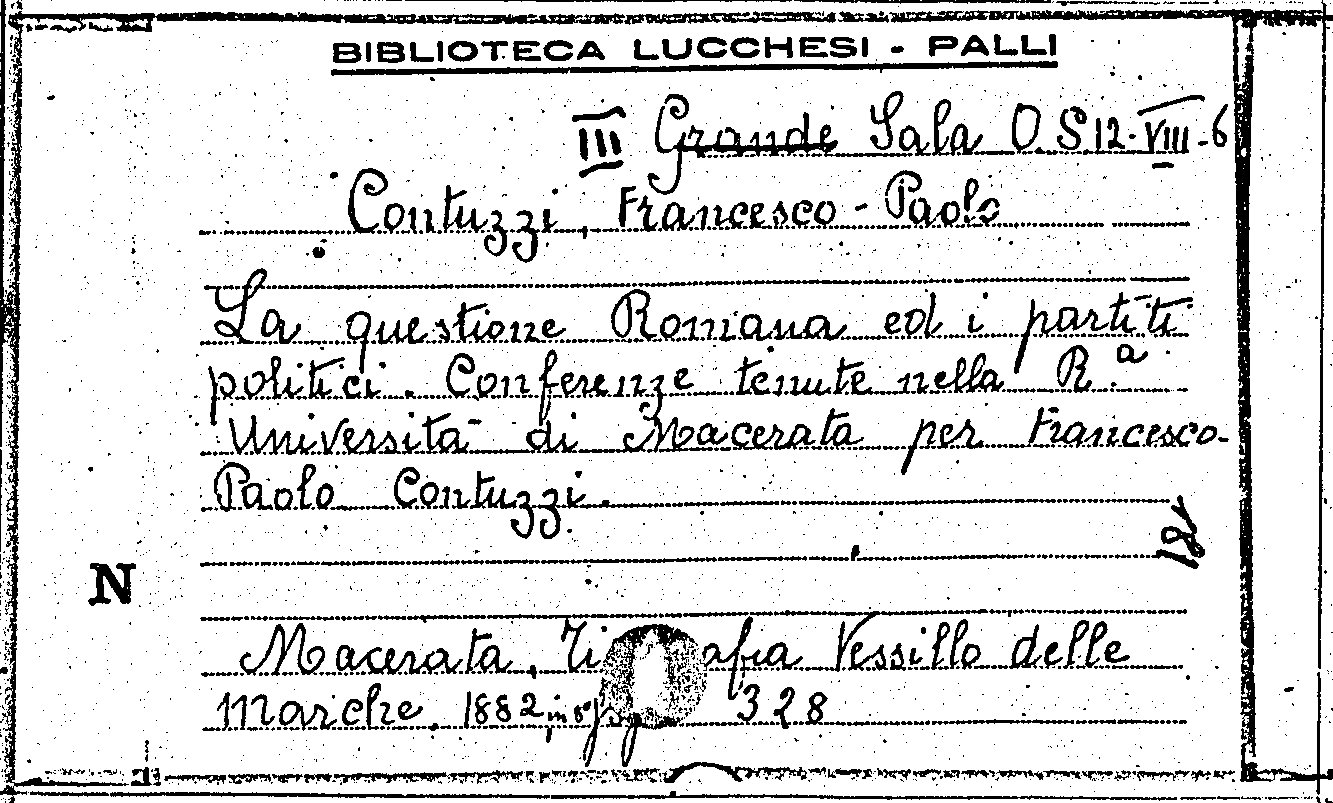 BIBLIOTECA LUCCHESI - PALLI
III Grande Sala O. S 12. VIII. 6
Contuzzi, Francesco - Paolo
La questione Romana ed i partiti
politici. Conferenze tenute nella R.a
Università di Macerata per Francesco-
Paolo Contuzzi.
N
Macerata, Vessillo delle
Marche, 1882, in 8° 328